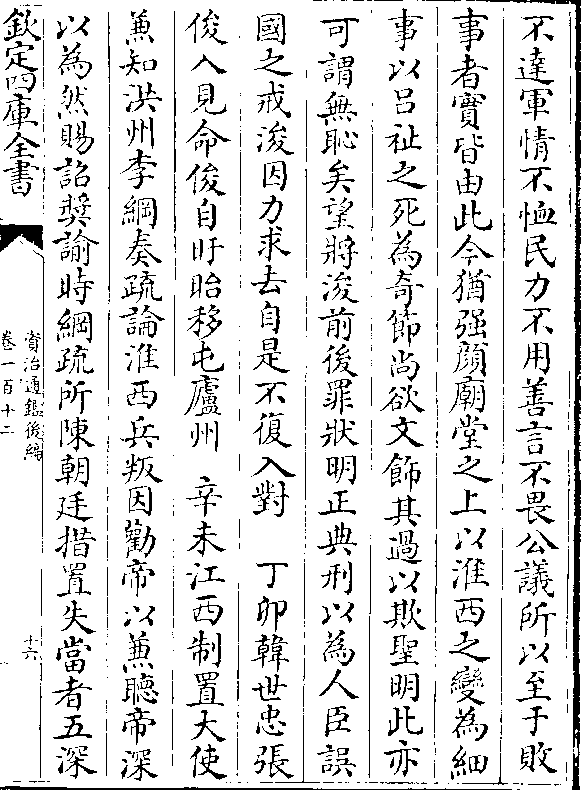 不達軍情不恤民力不用善言不畏公議所以至于敗
事者實皆由此今猶强顔廟堂之上以淮西之變為細
事以吕祉之死為奇節尚欲文飾其過以欺聖明此亦
可謂無恥矣望將浚前後罪狀明正典刑以為人臣誤
國之戒浚因力求去自是不復入對　丁卯韓世忠張
俊入見命俊自盱眙移屯廬州　辛未江西制置大使
兼知洪州李綱奏疏論淮西兵叛因勸帝以兼聽帝深
以為然賜詔奬諭時綱疏所陳朝廷措置失當者五深
欽定四庫全書
資治通鑑後編
卷一百十二
十六